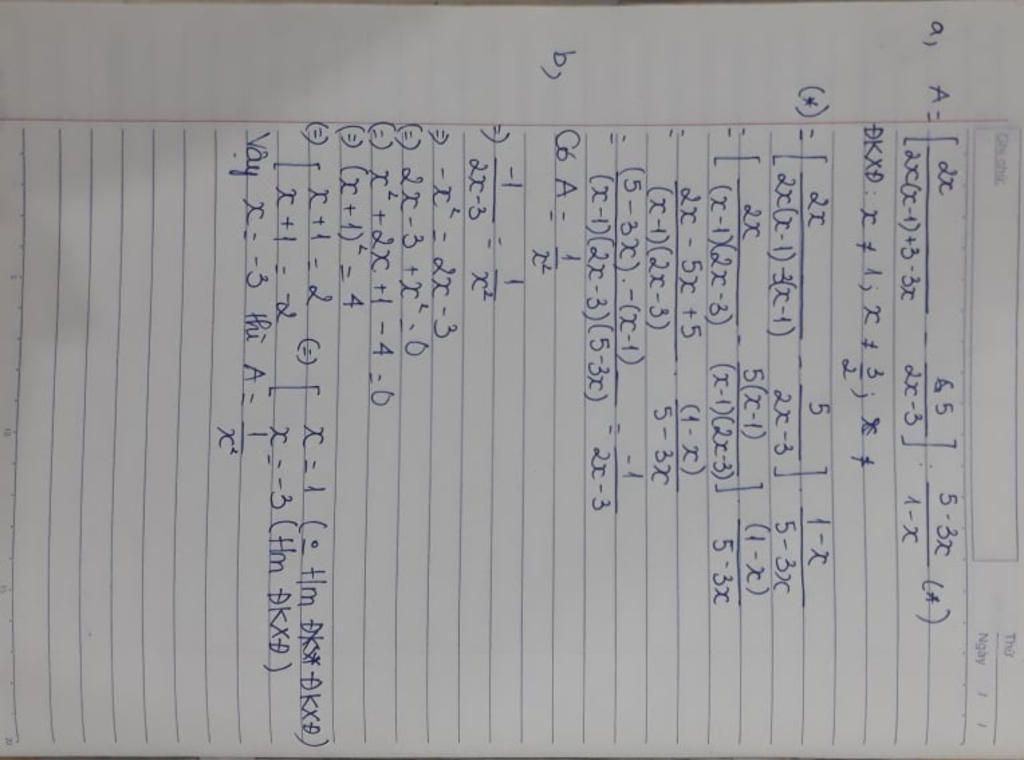 Ghi chú:
Thứ
Ngày / /
a, A = [ 2x / (2x(x-1)+3-3x) - 5 / (2x-3) ] : (5-3x) / (1-x) (*)
ĐKXĐ: x ≠ 1; x ≠ 3/2; x ≠
(*) = [ 2x / (2x(x-1)-3(x-1)) - 5 / (2x-3) ] . (1-x) / (5-3x)
= [ 2x / ((x-1)(2x-3)) - 5(x-1) / ((x-1)(2x-3)) ] . (1-x) / (5-3x)
= (2x - 5x + 5) / ((x-1)(2x-3)) . (1-x) / (5-3x)
= (5-3x).-(x-1) / ((x-1)(2x-3)(5-3x)) = -1 / (2x-3)
b, Có A = 1 / x²
=) -1 / (2x-3) = 1 / x²
=) -x² = 2x-3
(=) 2x-3+x² = 0
(=) x²+2x+1-4=0
(=) (x+1)² = 4
(=) [ x+1=2 (=) [ x=1 (o t/m ĐKXĐ)
[ x+1=-2 [ x=-3 (t/m ĐKXĐ)
Vậy x=-3 thì A= 1 / x²